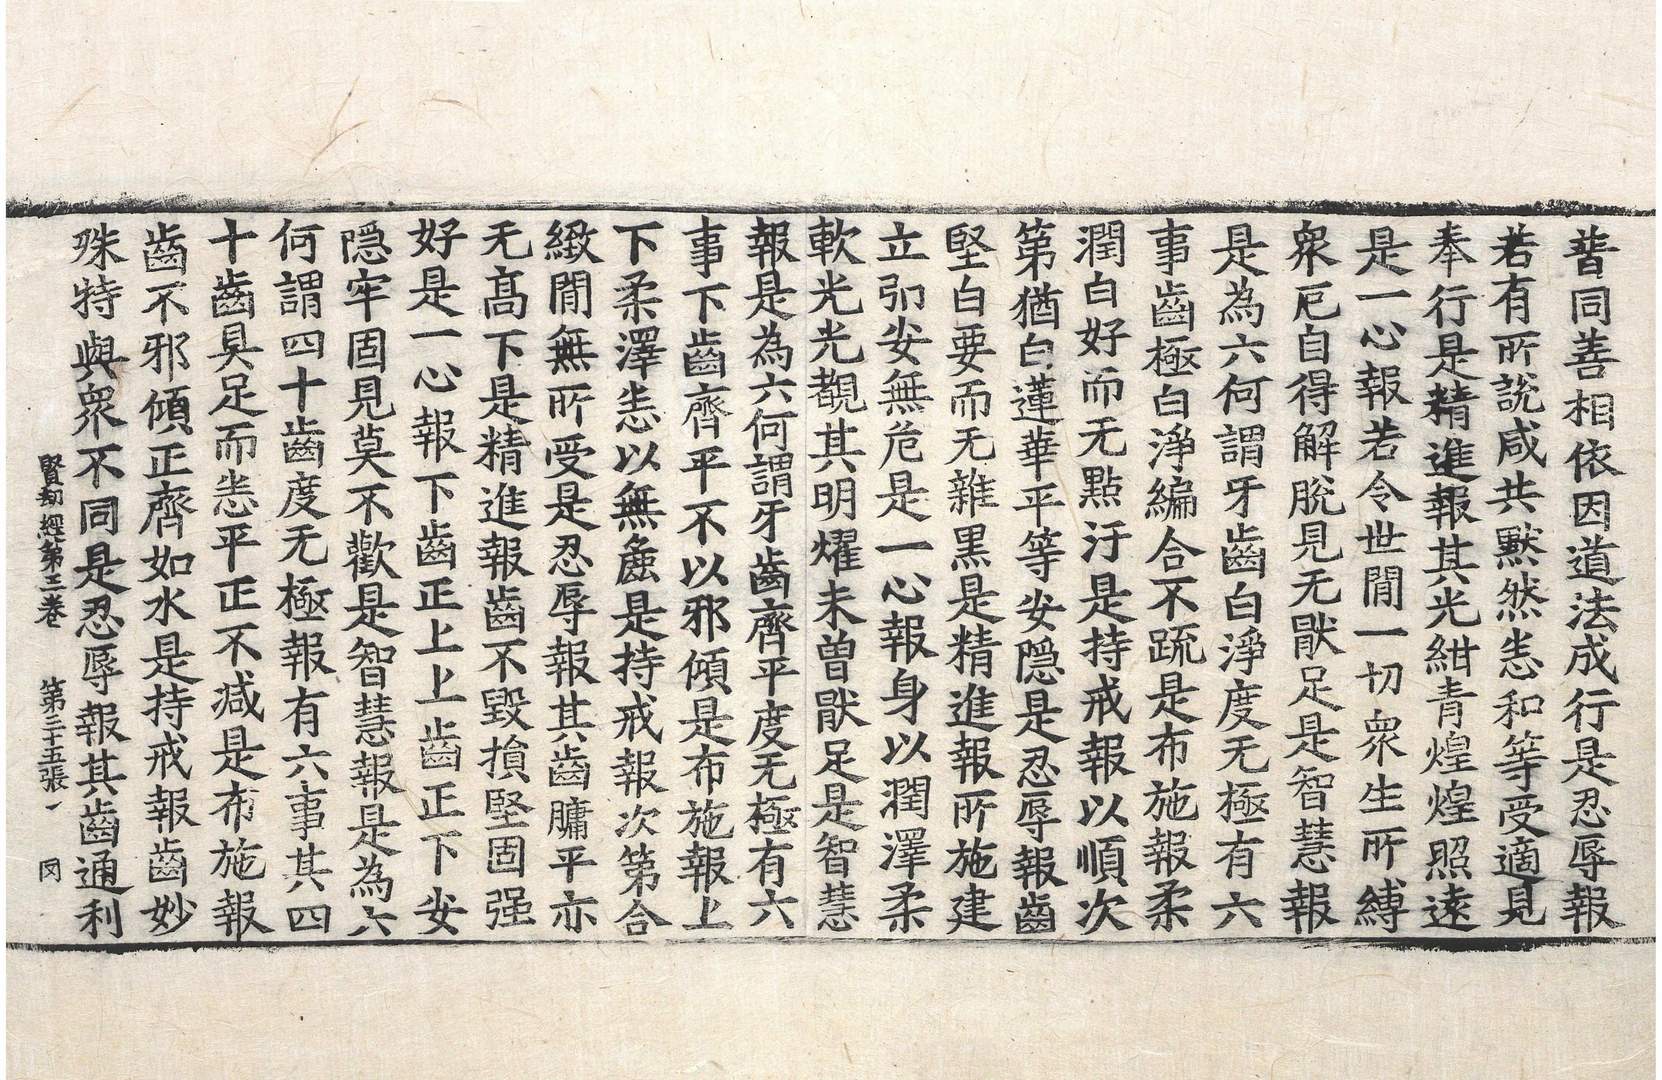 普同善相依因道法成行是忍辱報
若有所說咸共默然恙和等受適見
奉行是精進報其光紺青煌煌照遠
是一心報若令世間一切衆生所縛
衆厄自得解脫見无猒足是智慧報
是為六何謂牙齒白淨度无極有六
事齒極白淨編合不踈是布施報柔
潤白好而无點汙是持戒報以順次
第猶白蓮華平等安隱是忍辱報齒
堅白要而无雜黑是精進報所施建
立弘安無危是一心報身以潤澤柔
軟光光觀其明燿未曾猒足是智慧
報是為六何謂牙齒齊平度无極有六
事下齒齊平不以邪傾是布施報上
下柔澤恙以無麁是持戒報次第合
緻間無所受是忍辱報其齒牗平亦
无高下是精進報齒不毀損堅固强
好是一心報下齒正上上齒正下安
隱牢固見莫不歡是智慧報是為六
何謂四十齒度无極報有六事其四
十齒具足而恙平正不减是布施報
齒不邪傾正齊如水是持戒報齒妙
殊特與衆不同是忍辱報其齒通利
賢劫經第三卷 第二十五張 罔